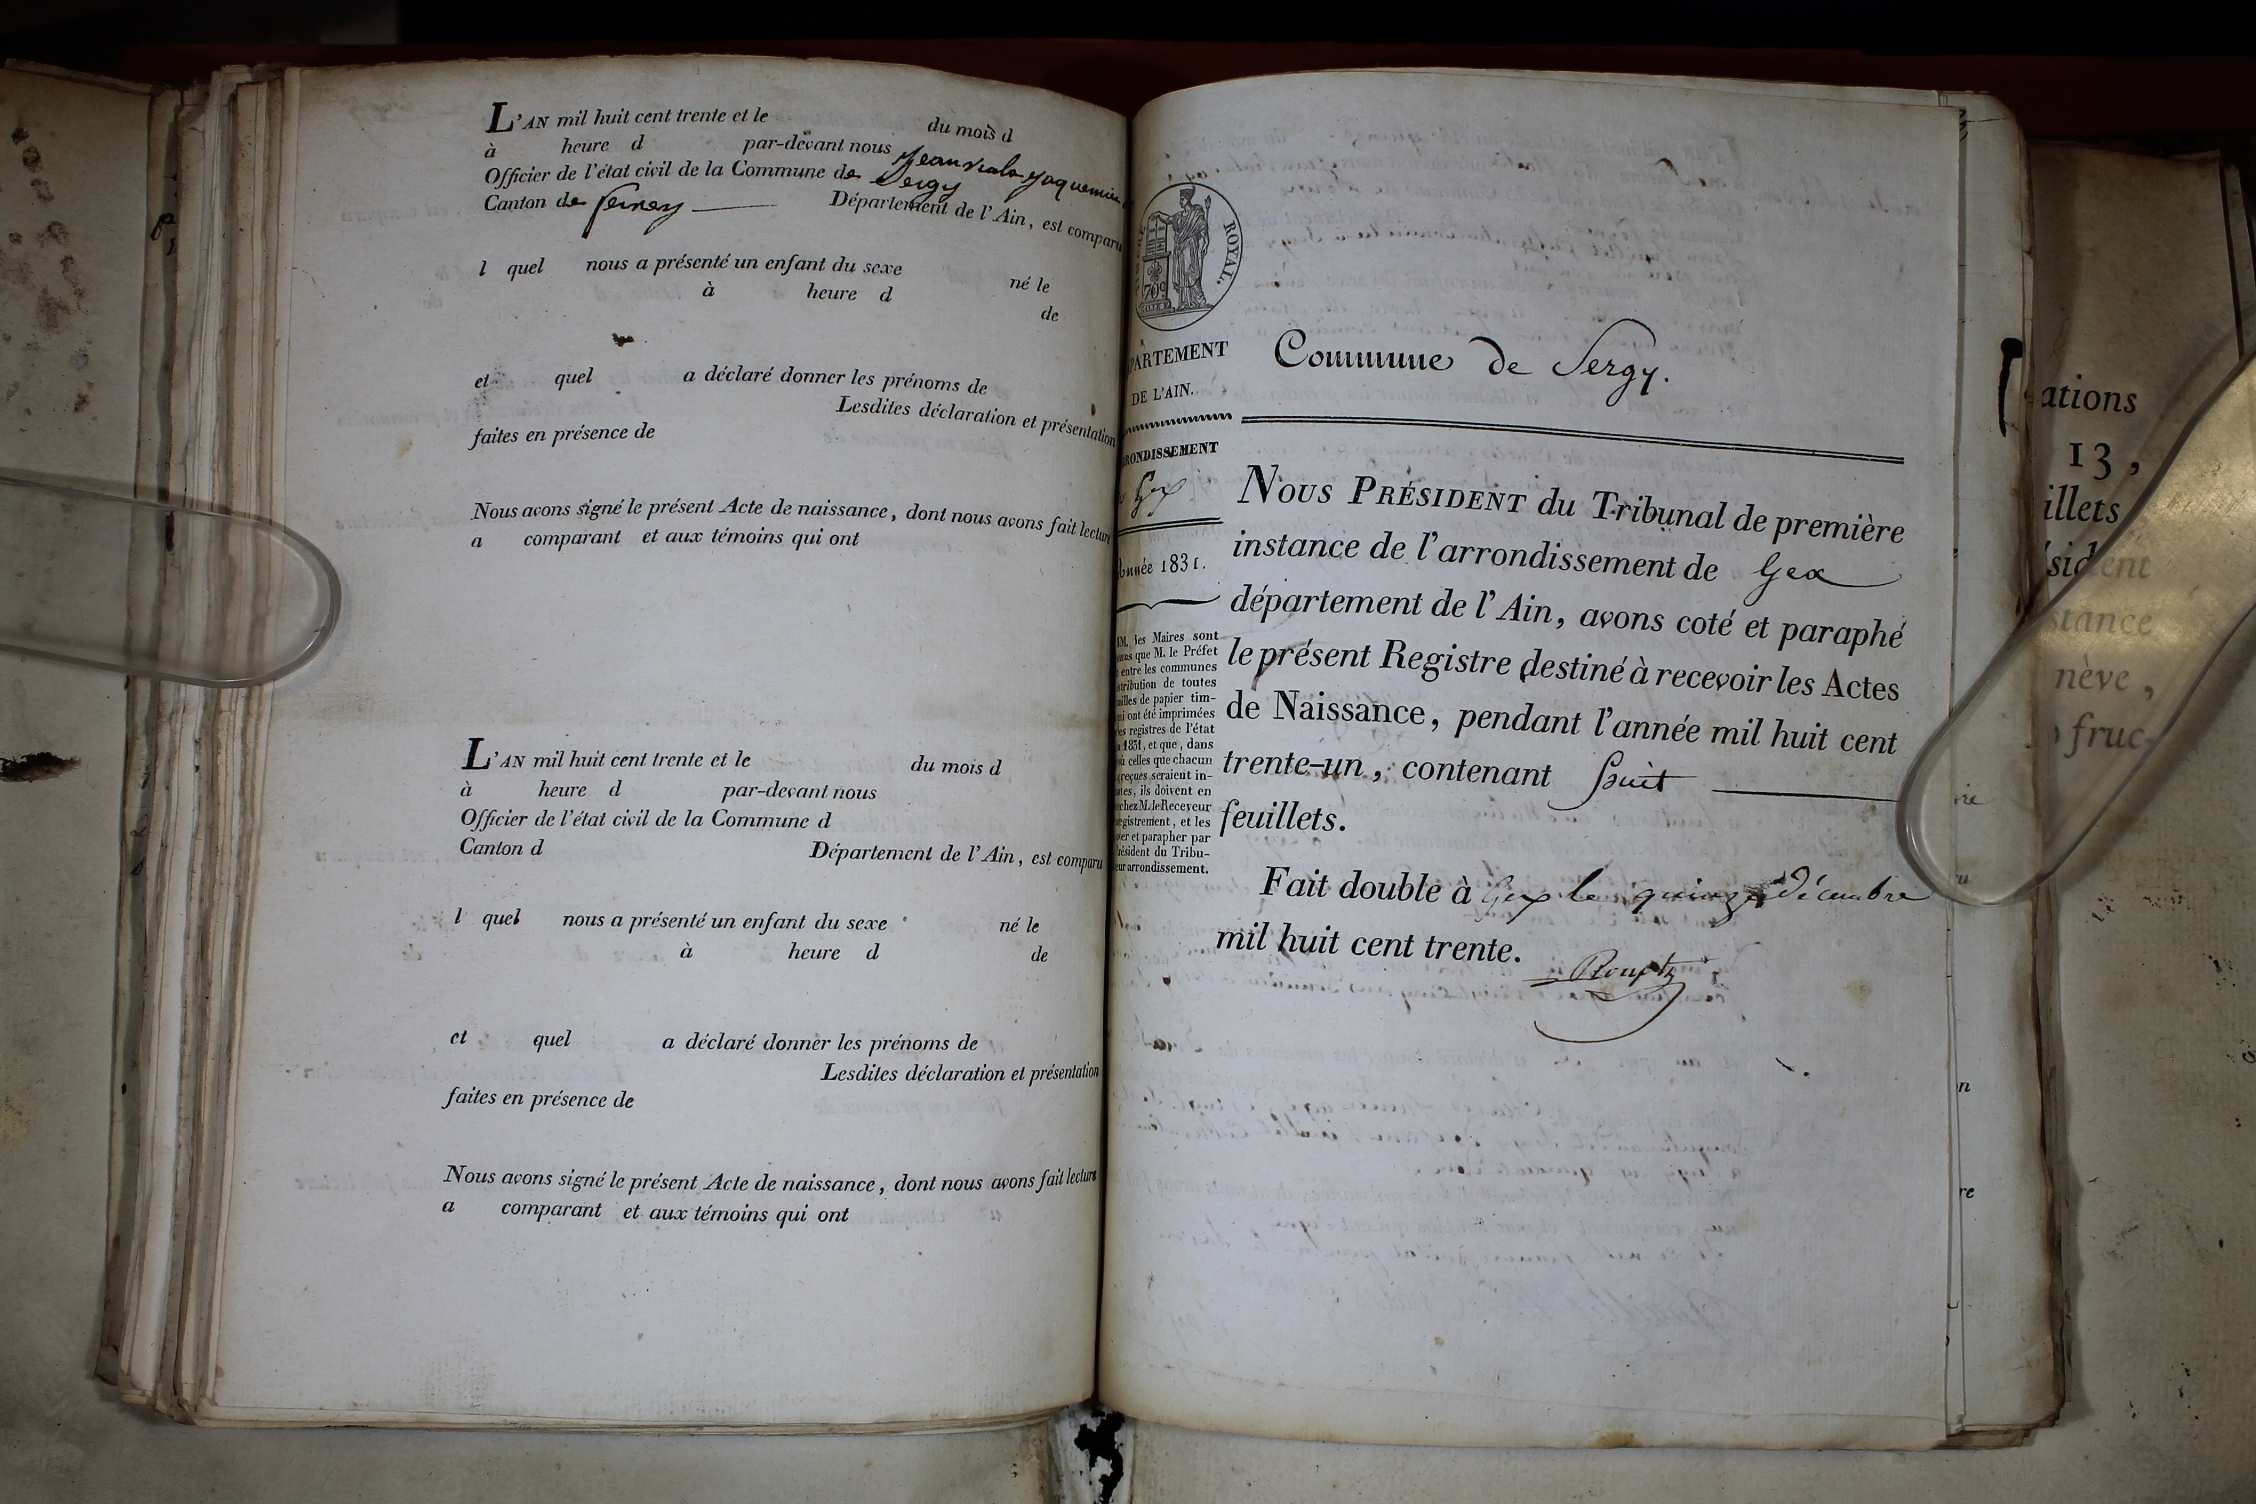 L'AN mil huit cent trente et le du mois d
à heure d par-devant nous Jean
Officier de l'état civil de la Commune de Sergy
Canton de Ferney Département de l'Ain, est comparu
l quel nous a présenté un enfant du sexe né le
à heure d
de
et quel a déclaré donner les prénoms de
Lesdites déclaration et présentation
faites en présence de
Nous avons signé le présent Acte de naissance, dont nous avons fait lecture
a comparant et aux témoins qui ont
L'AN mil huit cent trente et le du mois d
à heure d par-devant nous
Officier de l'état civil de la Commune d
Canton d Département de l'Ain, est comparu
l quel nous a présenté un enfant du sexe né le
à heure d de
et quel a déclaré donner les prénoms de
Lesdites déclaration et présentation
faites en présence de
Nous avons signé le présent Acte de naissance, dont nous avons fait lecture
a comparant et aux témoins qui ont
ROYAL.
PARTEMENT
DE L'AIN.
RONDISSEMENT
Gex
Année 1831.
MM. les Maires sont
que M. le Préfet
entre les communes
tribution de toutes
uilles de papier tim-
ui ont été imprimées
les registres de l'état
1831, et que, dans
où celles que chacun
reçues seraient in-
ntes, ils doivent en
chez M. le Receveur
registrement, et les
er et parapher par
résident du Tribu-
eur arrondissement.
Commune de Sergy.
NOUS PRÉSIDENT du Tribunal de première
instance de l'arrondissement de Gex
département de l'Ain, avons coté et paraphé
le présent Registre destiné à recevoir les Actes
de Naissance, pendant l'année mil huit cent
trente-un, contenant huit
feuillets.
Fait double à Gex le quinze décembre
mil huit cent trente.
ations
13,
illets
sident
stance
nève,
fruc-